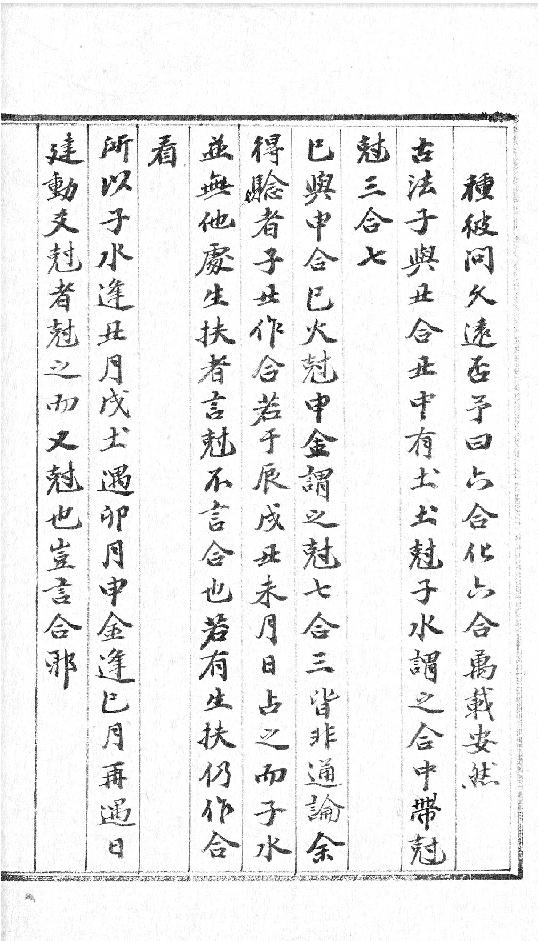 種彼問久遠否予曰六合化六合萬載安然
古法子與丑合丑中有土土尅子水謂之合中帶尅
尅三合七
巳與申合巳火尅申金謂之尅七合三皆非通論余
得驗者子丑作合若于辰戌丑未月日占之而子水
並無他處生扶者言尅不言合也若有生扶仍作合
看
所以子水逢丑月戌土遇卯月申金逢巳月再遇日
建動爻尅者尅之而又尅也豈言合耶